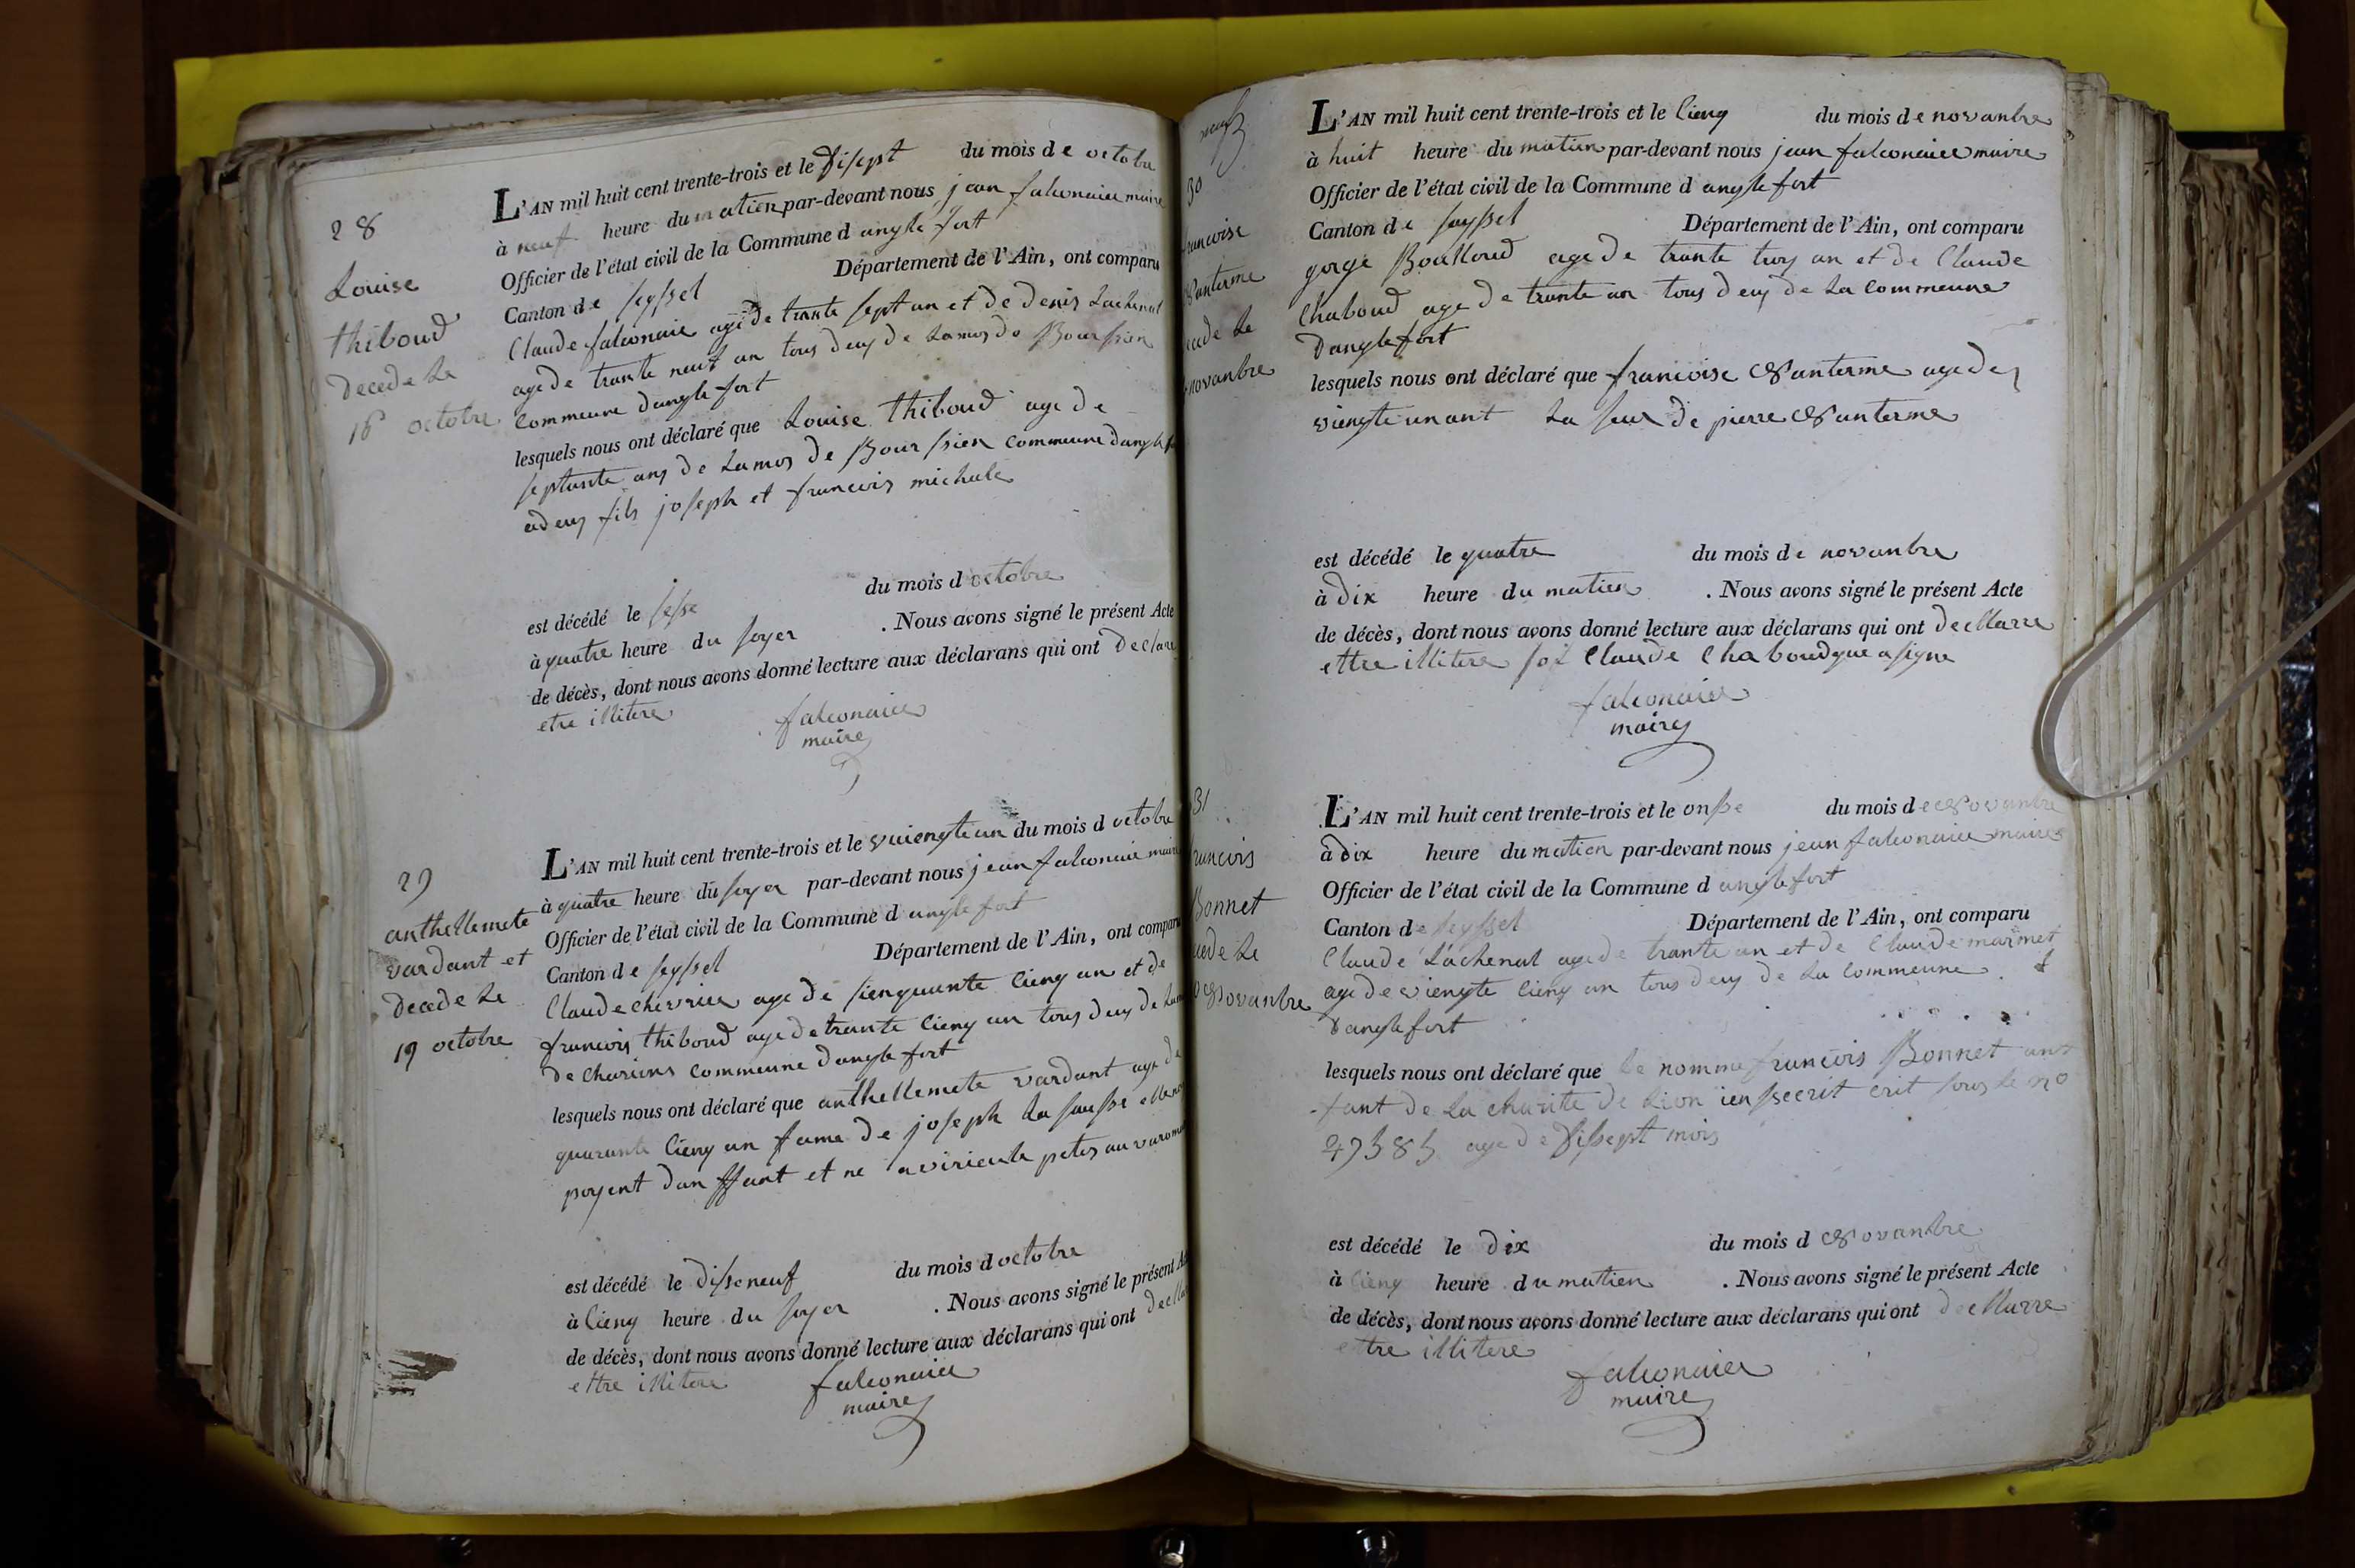 28
Louise
thiboud
decede le
16 octobre
L'AN mil huit cent trente-trois et le disept du mois de octobre
à neuf heure du matien par-devant nous jean falconnier maire
Officier de l'état civil de la Commune d anglefort
Canton de seyssel Département de l'Ain, ont comparu
Claude falconnie agé de trante sept an et de denis Lachenal
age de trante neuf an tous deux de
commeune danglefort
lesquels nous ont déclaré que Louise thiboud age de
septante ans de commeune danglefort
a deux fils joseph et francois michale
est décédé le sesse du mois d octobre
à quatre heure du soyer . Nous avons signé le présent Acte
de décès, dont nous avons donné lecture aux déclarans qui ont declare
etre illitere
falconnier
maire
29
anthellemete
vardant et
decede le
19 octobre
L'AN mil huit cent trente-trois et le vuiengteun du mois d octobre
à quatre heure du soyer par-devant nous jean falconnie maire
Officier de l'état civil de la Commune d anglefort
Canton de seyssel Département de l'Ain, ont comparu
Claude chevrier age de sienquante cienq an et de
francois thiboud age de trante cienq an tous deux de
commeune danglefort
lesquels nous ont déclaré que anthellemete vardant age de
quarante cienq an fame de joseph
poyent dan ffant et ne
est décédé le disseneuf du mois d octobre
à cienq heure du soyer . Nous avons signé le présent
de décès, dont nous avons donné lecture aux déclarans qui ont
ettre illitere
falconnier
maire
30
L'AN mil huit cent trente-trois et le cienq du mois de novanbre
à huit heure du matien par-devant nous jean falconnier maire
Officier de l'état civil de la Commune d anglefort
Canton de seyssel Département de l'Ain, ont comparu
gorge Boulloud age de trante troy an et de Claude
Chaboud age de trante an tous deux de La commeune
danglefort
lesquels nous ont déclaré que francoise age de
viengte un ant La de pierre
est décédé le quatre du mois de novanbre
à dix heure du matien . Nous avons signé le présent Acte
de décès, dont nous avons donné lecture aux déclarans qui ont decllarre
ettre illitere Claude Chaboud que a signe
falconnier
maire
31
L'AN mil huit cent trente-trois et le onsse du mois de Novanbre
à dix heure du matien par-devant nous jean falconnier maire
Officier de l'état civil de la Commune d anglefort
Canton de seyssel Département de l'Ain, ont comparu
Claude Lachenal age de trante an et de Claude marmet
age de viengte cienq an tous deux de La commeune
danglefort
lesquels nous ont déclaré que le nomme francois Bonnet anf
fant de La charite de Lion crit sous le no
age de dissept mois
est décédé le dix du mois d Novanbre
à cienq heure du matien . Nous avons signé le présent Acte
de décès, dont nous avons donné lecture aux déclarans qui ont decllarre
ettre illitere
falconnier
maire